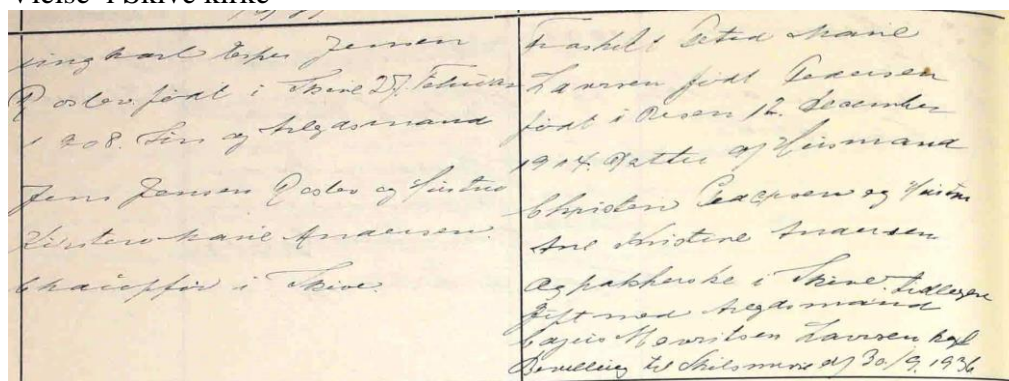 Vielse i Skive kirke
ung karl Esper Jensen
Roslev født i Skive 27. Februar
1908. Søn af Arbejdsmand
Jens Jensen Roslev og Hustru
Kirstine Marie Andersen.
Chauffør i Skive.
Fraskilt Marie
Laursen født Pedersen
født i Resen 12. December
1914. Datter af Husmand
Christen Pedersen og Hustru
Ane Kristine Andersen
Ægpakkerske i Skive. tidligere
gift med Arbejdsmand
Cajus Mouritsen Laursen kgl
Bevilling til Skilsmisse af 30/9. 1936